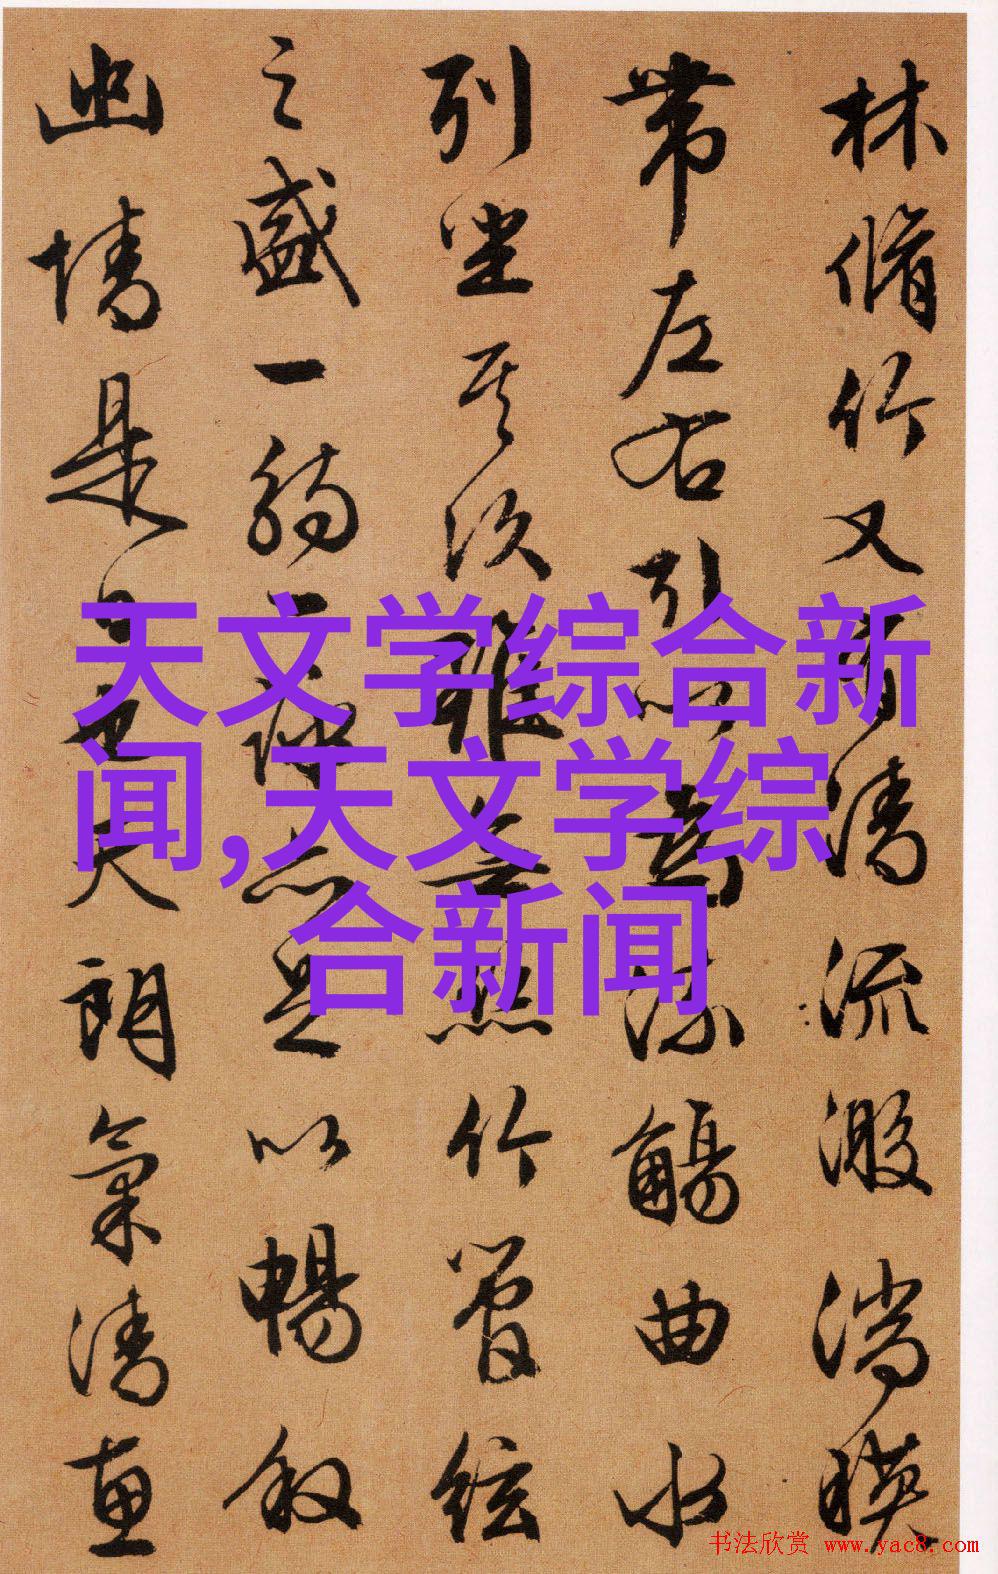 林脩竹又有清流激湍暎
带左右引以為流觴曲水
列坐其次雖無絲竹管絃
之盛一觴一詠亦足以暢叙
幽情是日也天朗氣清惠
天文学综合新
闻,天文学综
合新闻
书法欣赏 www.yac8.com